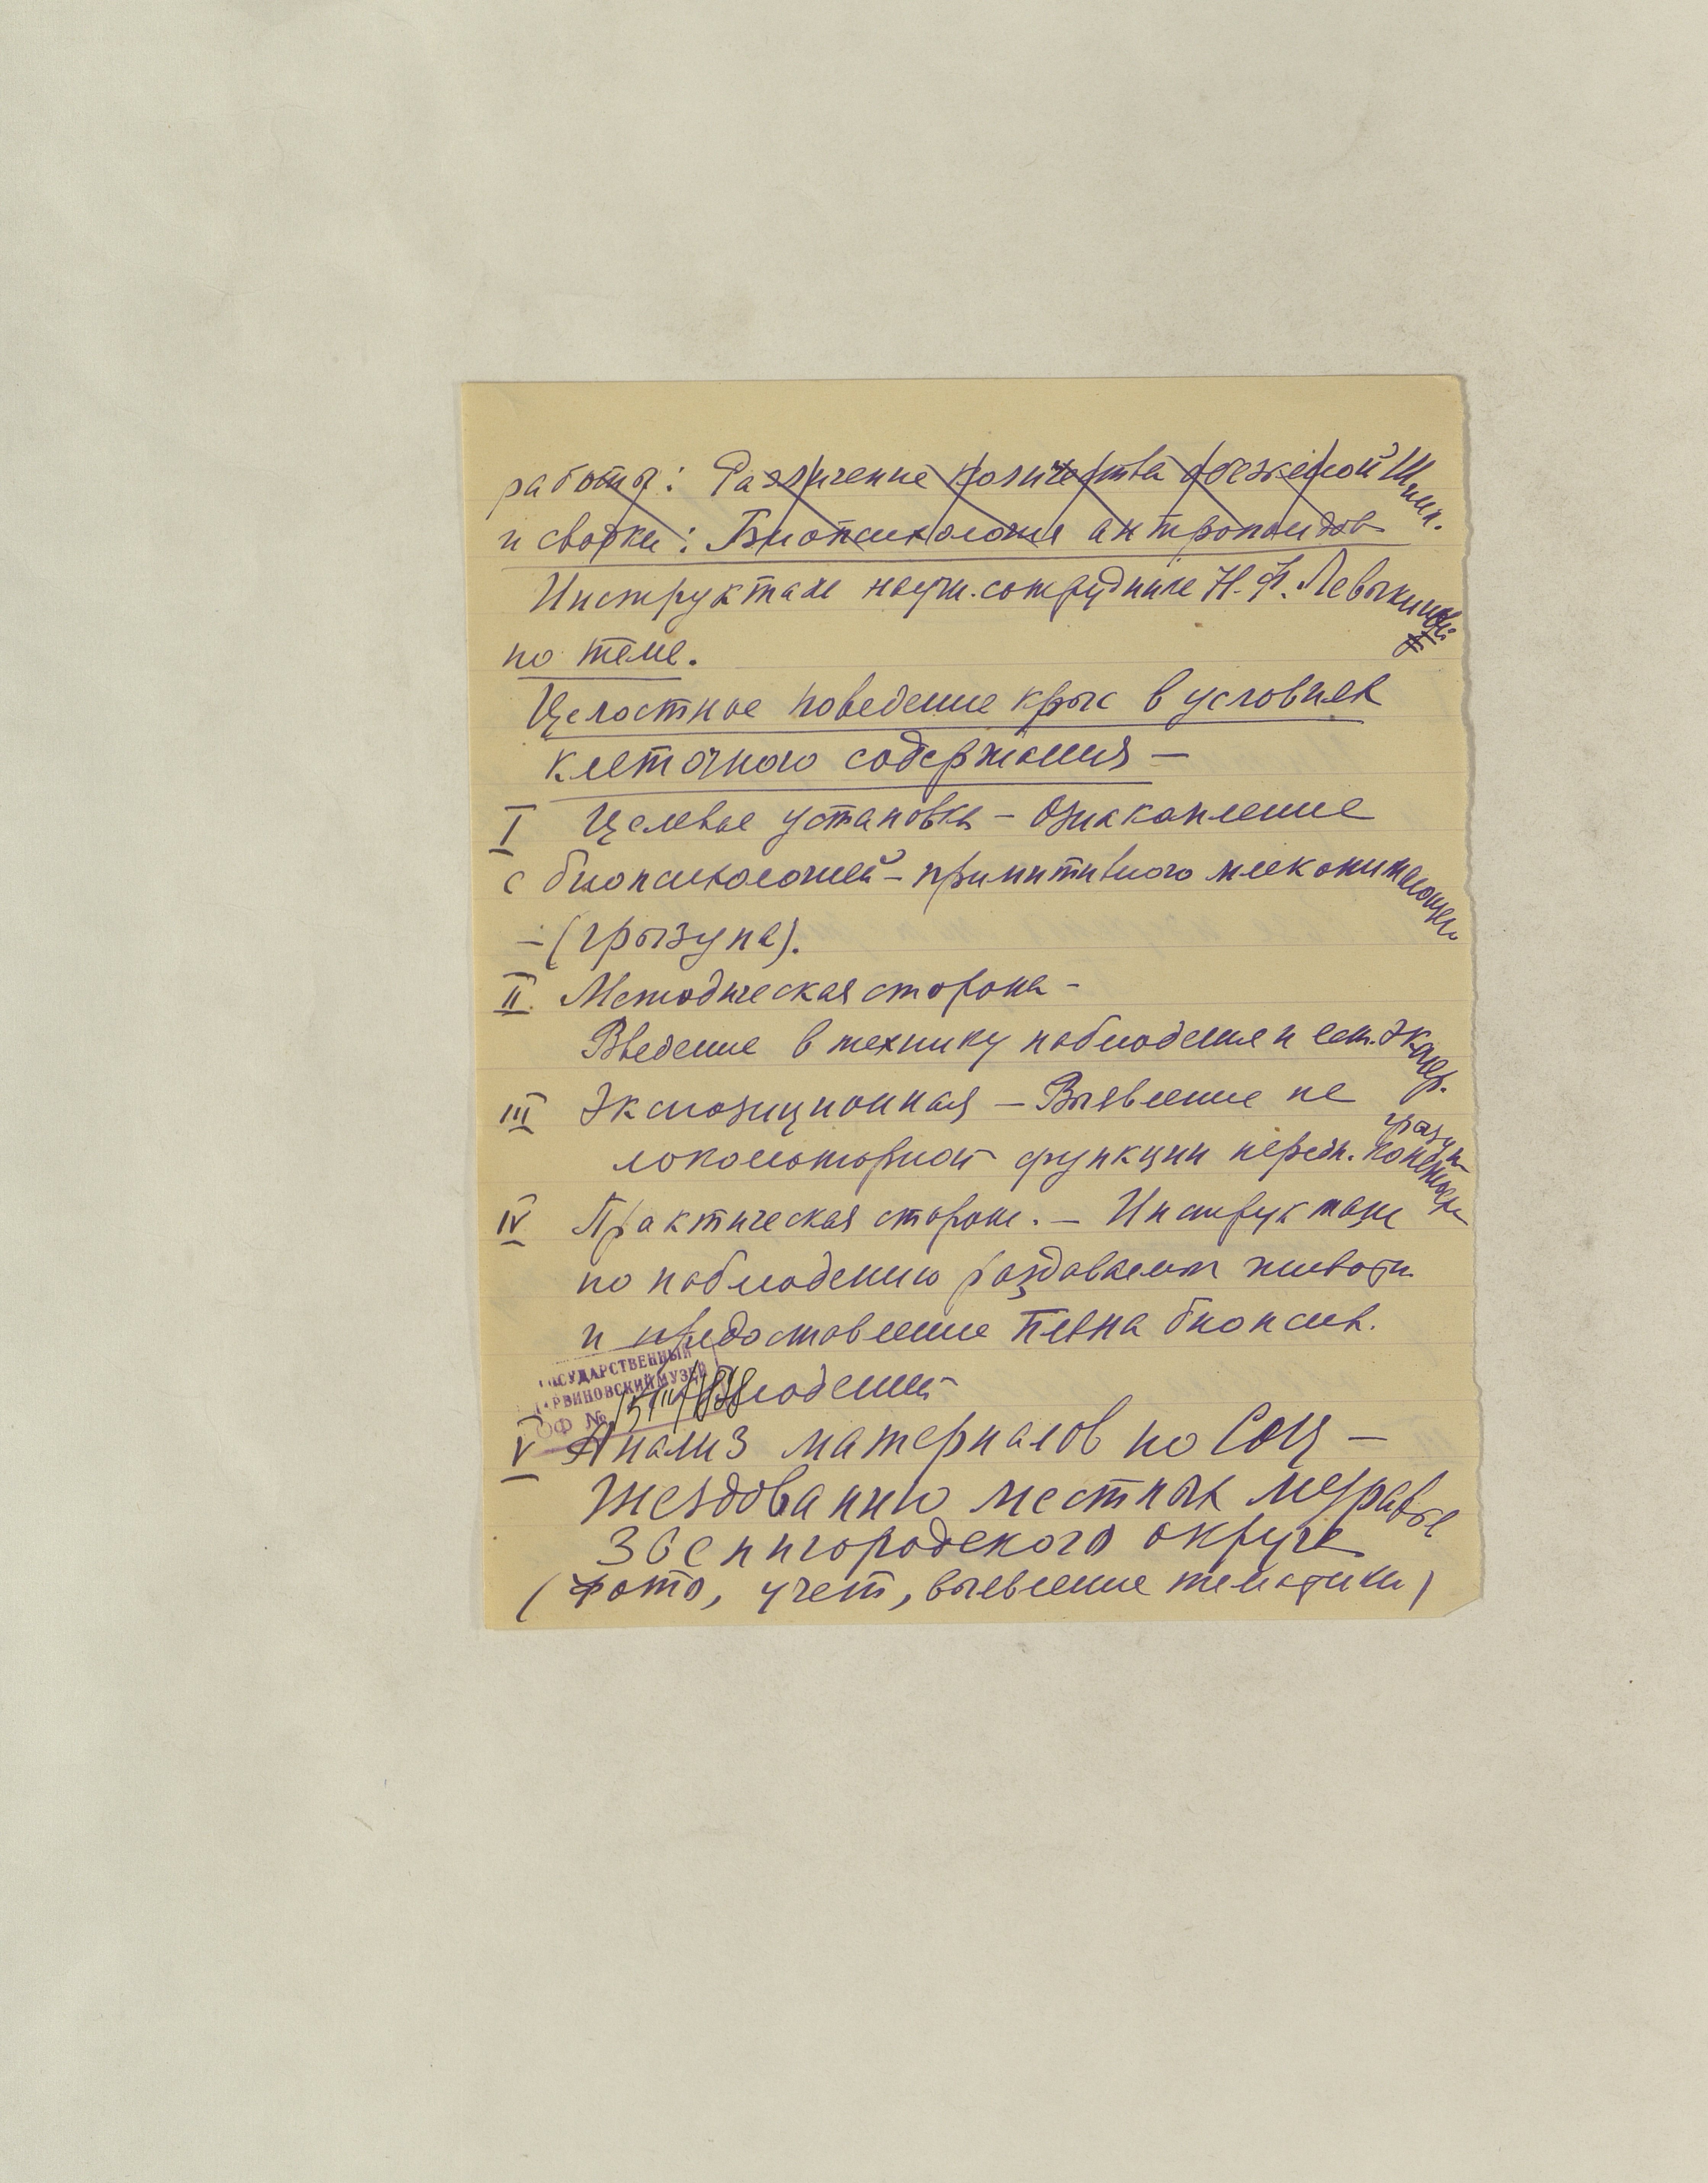 работы: Различение количества обезьяной Шимп.
и сводки: Биопсихология антропоидов
Инструктаж научн. сотруднице Н. Ф. Левыкиной
по теме.
Целостное поведение крыс в условиях
клеточного содержания –
I Целевые установки – Ознакомление
с биопсихологией – примитивного млекопитающего
– (грызуна).
II. Методическая сторона –
Введение в технику наблюдения и ест. экспер.
III Экспозиционная – Выявление не
локомоторной функции передн. конечностей
IV Практическая сторона. – Инструктаж
по наблюдению животн.
и предоставление плана биопсих.
наблюдений
ГОСУДАРСТВЕННЫЙ
ДАРВИНОВСКИЙ МУЗЕЙ
ОФ №
V Анализ материалов по Соц –
гнездованию местных муравьев
Звенигородского округа
(фото, учет, выявление тематики)